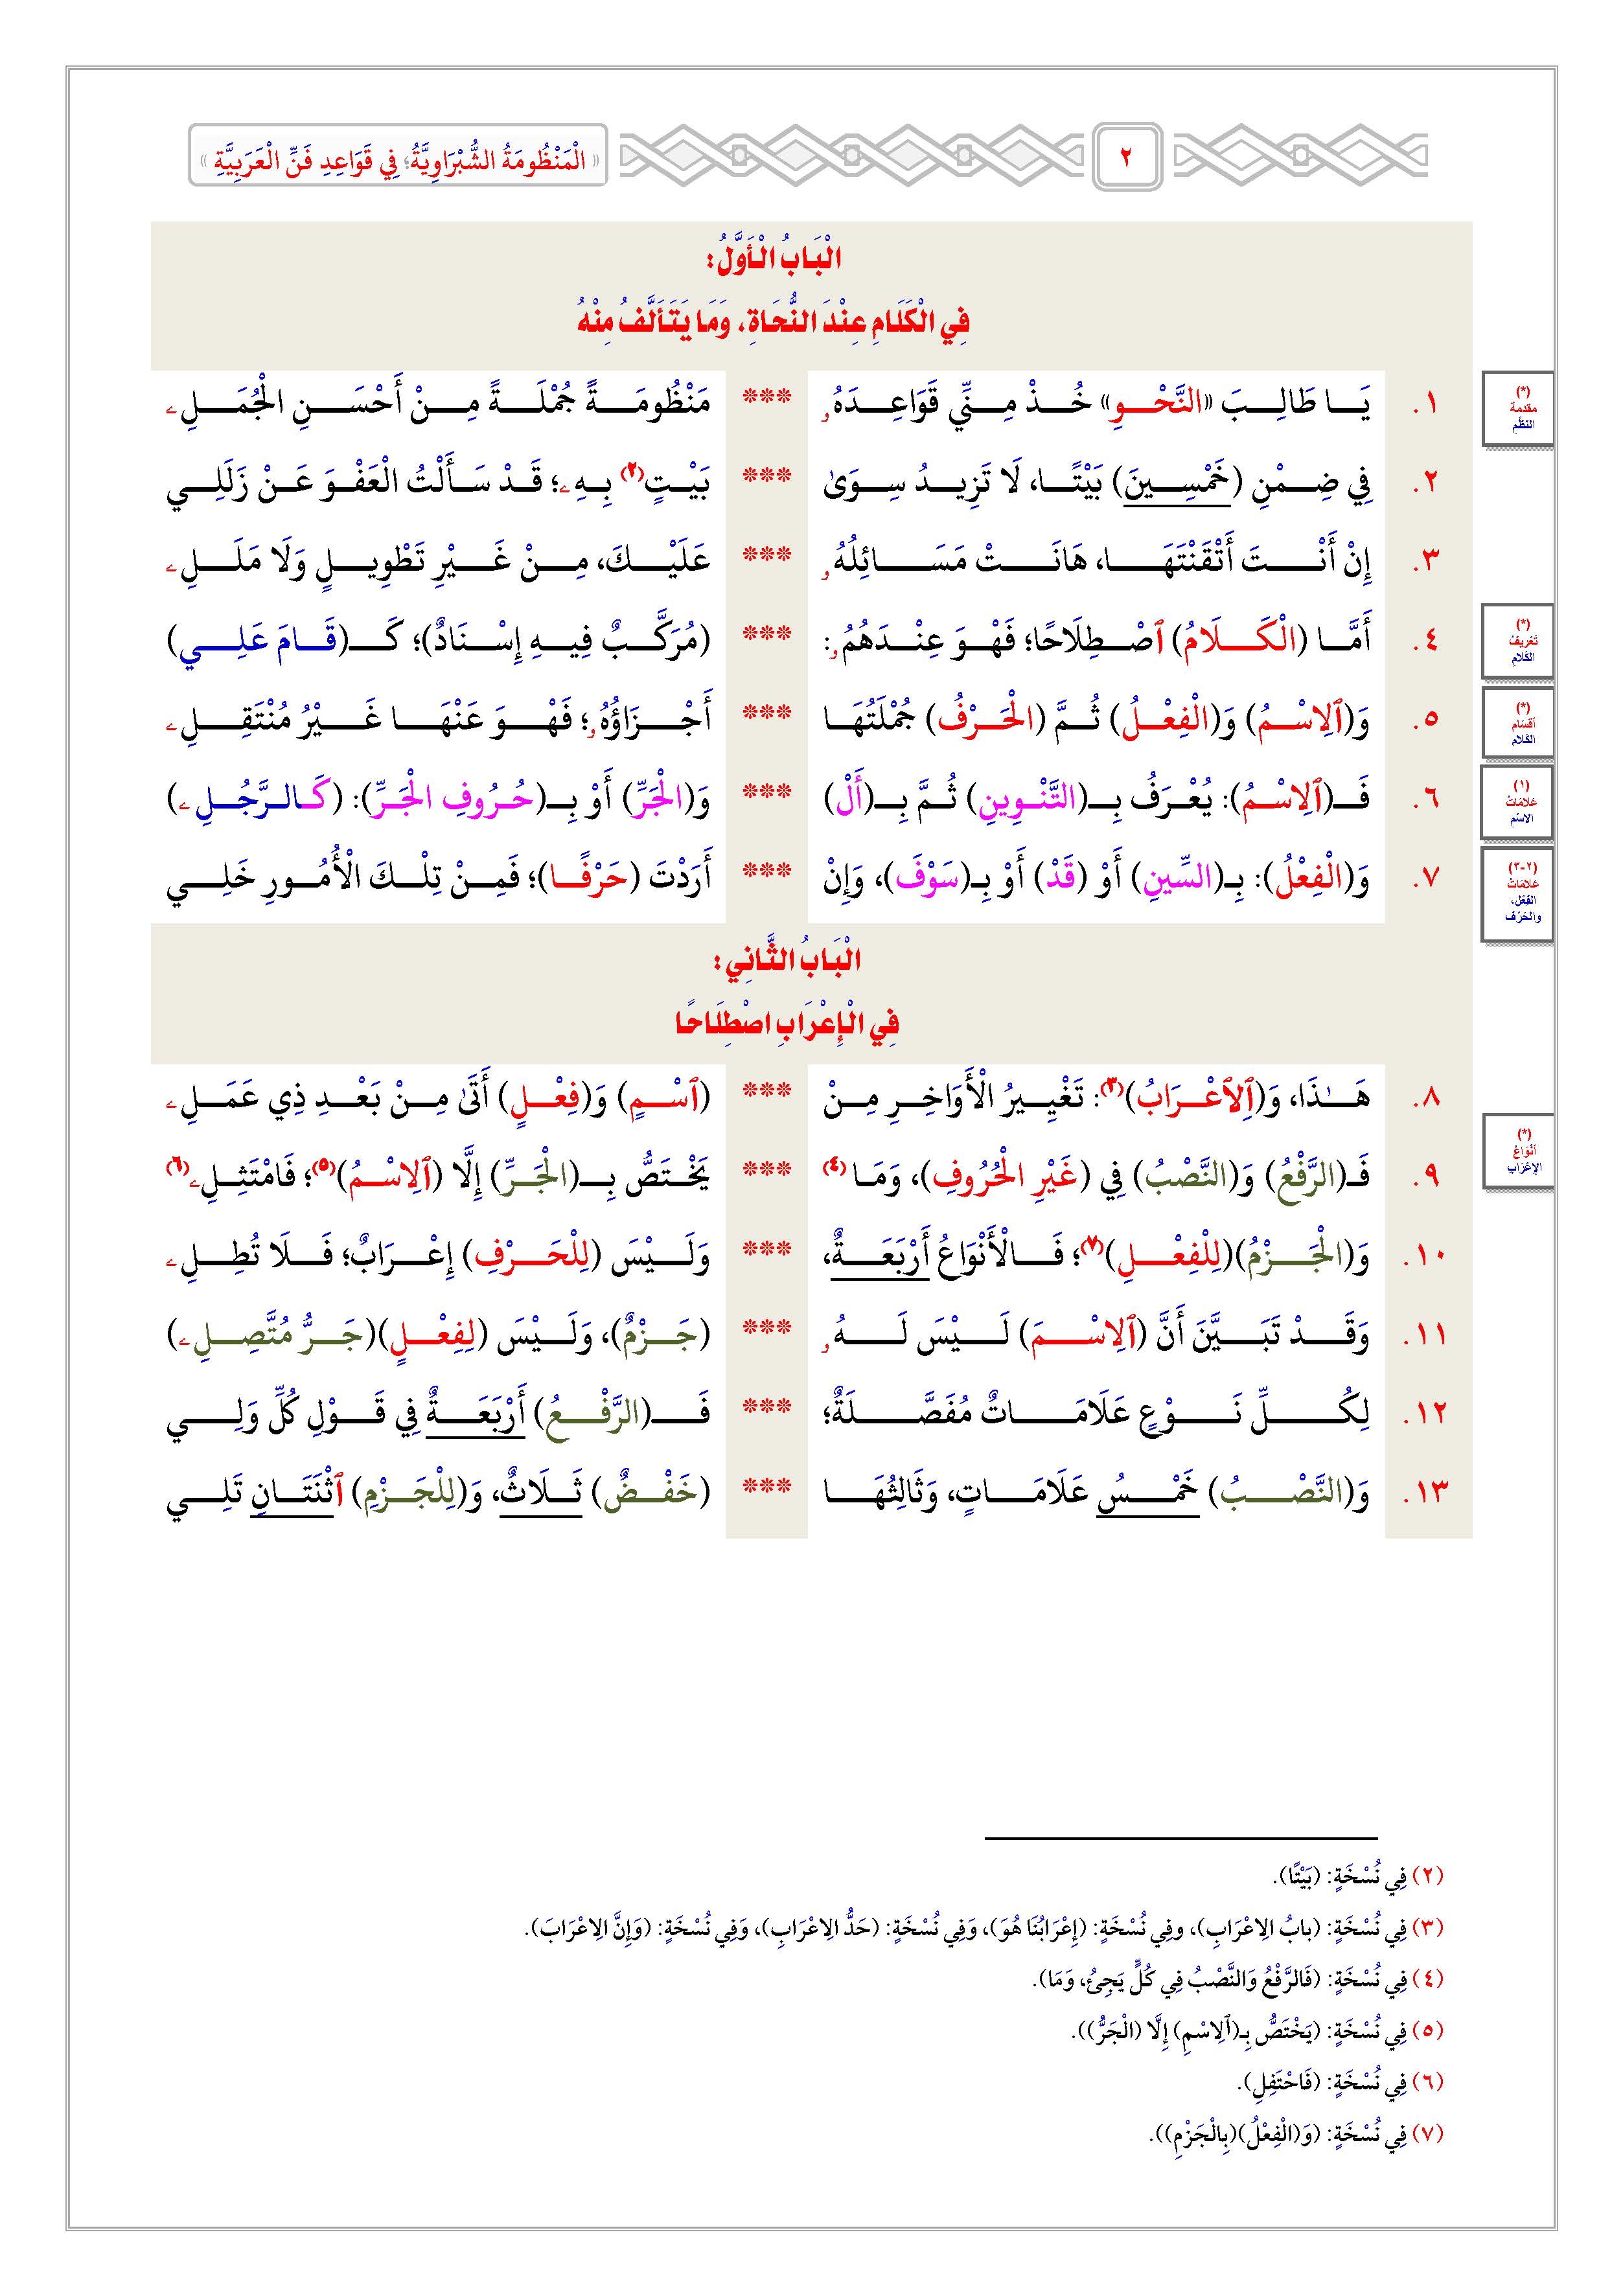 ٢ « الْمَنْظُومَةُ الشُّبْرَاوِيَّةُ؛ فِي قَوَاعِدِ فَنِّ الْعَرَبِيَّةِ »
الْبَابُ الْأَوَّلُ:
فِي الْكَلَامِ عِنْدَ النُّحَاةِ، وَمَا يَتَأَلَّفُ مِنْهُ
(*) مقدمة النظم
١. يَا طَالِبَ «النَّحْوِ» خُذْ مِنِّي قَوَاعِدَهُۥ *** مَنْظُومَةً جُمْلَةً مِنْ أَحْسَنِ الْجُمَلِۦ
٢. فِي ضِمْنِ (خَمْسِينَ) بَيْتًا، لَا تَزِيدُ سِوَىٰ *** بَيْتٍ(٢) بِهِۦ؛ قَدْ سَأَلْتُ الْعَفْوَ عَنْ زَلَلِي
٣. إِنْ أَنْتَ أَتْقَنْتَهَا، هَانَتْ مَسَائِلُهُۥ *** عَلَيْكَ، مِنْ غَيْرِ تَطْوِيلٍ وَلَا مَلَلِۦ
(*) تَعْرِيفُ الكَلَامِ
٤. أَمَّا (الْكَلَامُ) ٱصْطِلَاحًا؛ فَهْوَ عِنْدَهُمُۥ: *** (مُرَكَّبٌ فِيهِ إِسْنَادٌ)؛ كَـ(قَامَ عَلِي)
(*) أقْسَام الكَلام
٥. وَ(ٱلِاسْمُ) وَ(الْفِعْلُ) ثُمَّ (الْحَرْفُ) جُمْلَتُهَا *** أَجْزَاؤُهُۥ؛ فَهْوَ عَنْهَا غَيْرُ مُنْتَقِلِۦ
(١) عَلَامَاتُ الاسْمِ
٦. فَـ(ٱلِاسْمُ): يُعْرَفُ بِـ(التَّنْوِينِ) ثُمَّ بِـ(أَلْ) *** وَ(الْجَرِّ) أَوْ بِـ(حُرُوفِ الْجَرِّ): (كَالرَّجُلِۦ)
(٢-٣) عَلَامَاتُ الفِعْلِ، والحَرْف
٧. وَ(الْفِعْلُ): بِـ(السِّينِ) أَوْ (قَدْ) أَوْ بِـ(سَوْفَ)، وَإِنْ *** أَرَدْتَ (حَرْفًا)؛ فَمِنْ تِلْكَ الْأُمُورِ خَلِي
الْبَابُ الثَّانِي:
فِي الْإِعْرَابِ اصْطِلَاحًا
٨. هَـٰذَا، وَ(ٱلِٱعْرَابُ)(٣): تَغْيِيرُ الْأَوَاخِرِ مِنْ *** (ٱسْمٍ) وَ(فِعْلٍ) أَتَىٰ مِنْ بَعْدِ ذِي عَمَلِۦ
(*) أنْوَاعُ الإعْرَابِ
٩. فَـ(الرَّفْعُ) وَ(النَّصْبُ) فِي (غَيْرِ الْحُرُوفِ)، وَمَا (٤) *** يَخْتَصُّ بِـ(الْجَرِّ) إِلَّا (ٱلِاسْمُ)(٥)؛ فَامْتَثِلِۦ(٦)
١٠. وَ(الْجَزْمُ)(لِلْفِعْلِ)(٧)؛ فَالْأَنْوَاعُ أَرْبَعَةٌ، *** وَلَيْسَ (لِلْحَرْفِ) إِعْرَابٌ؛ فَلَا تُطِلِۦ
١١. وَقَدْ تَبَيَّنَ أَنَّ (ٱلِاسْمَ) لَيْسَ لَهُۥ *** (جَزْمٌ)، وَلَيْسَ (لِفِعْلٍ)(جَرُّ مُتَّصِلِۦ)
١٢. لِكُلِّ نَوْعٍ عَلَامَاتٌ مُفَصَّلَةٌ؛ *** فَـ(الرَّفْعُ) أَرْبَعَةٌ فِي قَوْلِ كُلِّ وَلِي
١٣. وَ(النَّصْبُ) خَمْسُ عَلَامَاتٍ، وَثَالِثُهَا *** (خَفْضٌ) ثَلَاثٌ، وَ(لِلْجَزْمِ) ٱثْنَتَانِ تَلِي
(٢) فِي نُسْخَةٍ: (بَيْتًا).
(٣) فِي نُسْخَةٍ: (بابُ الِاعْرَابِ)، وفِي نُسْخَةٍ: (إِعْرَابُنَا هُوَ)، وَفِي نُسْخَةٍ: (حَدُّ الِاعْرَابِ)، وَفِي نُسْخَةٍ: (وَإِنَّ الِاعْرَابَ).
(٤) فِي نُسْخَةٍ: (فَالرَّفْعُ وَالنَّصْبُ فِي كُلٍّ يَجِيْءُ، وَمَا).
(٥) فِي نُسْخَةٍ: (يَخْتَصُّ بِـ(ٱلِاسْمِ) إِلَّا (الْجَرُّ)).
(٦) فِي نُسْخَةٍ: (فَاحْتَفِلِ).
(٧) فِي نُسْخَةٍ: (وَ(الْفِعْلُ)(بِالْجَزْمِ)).